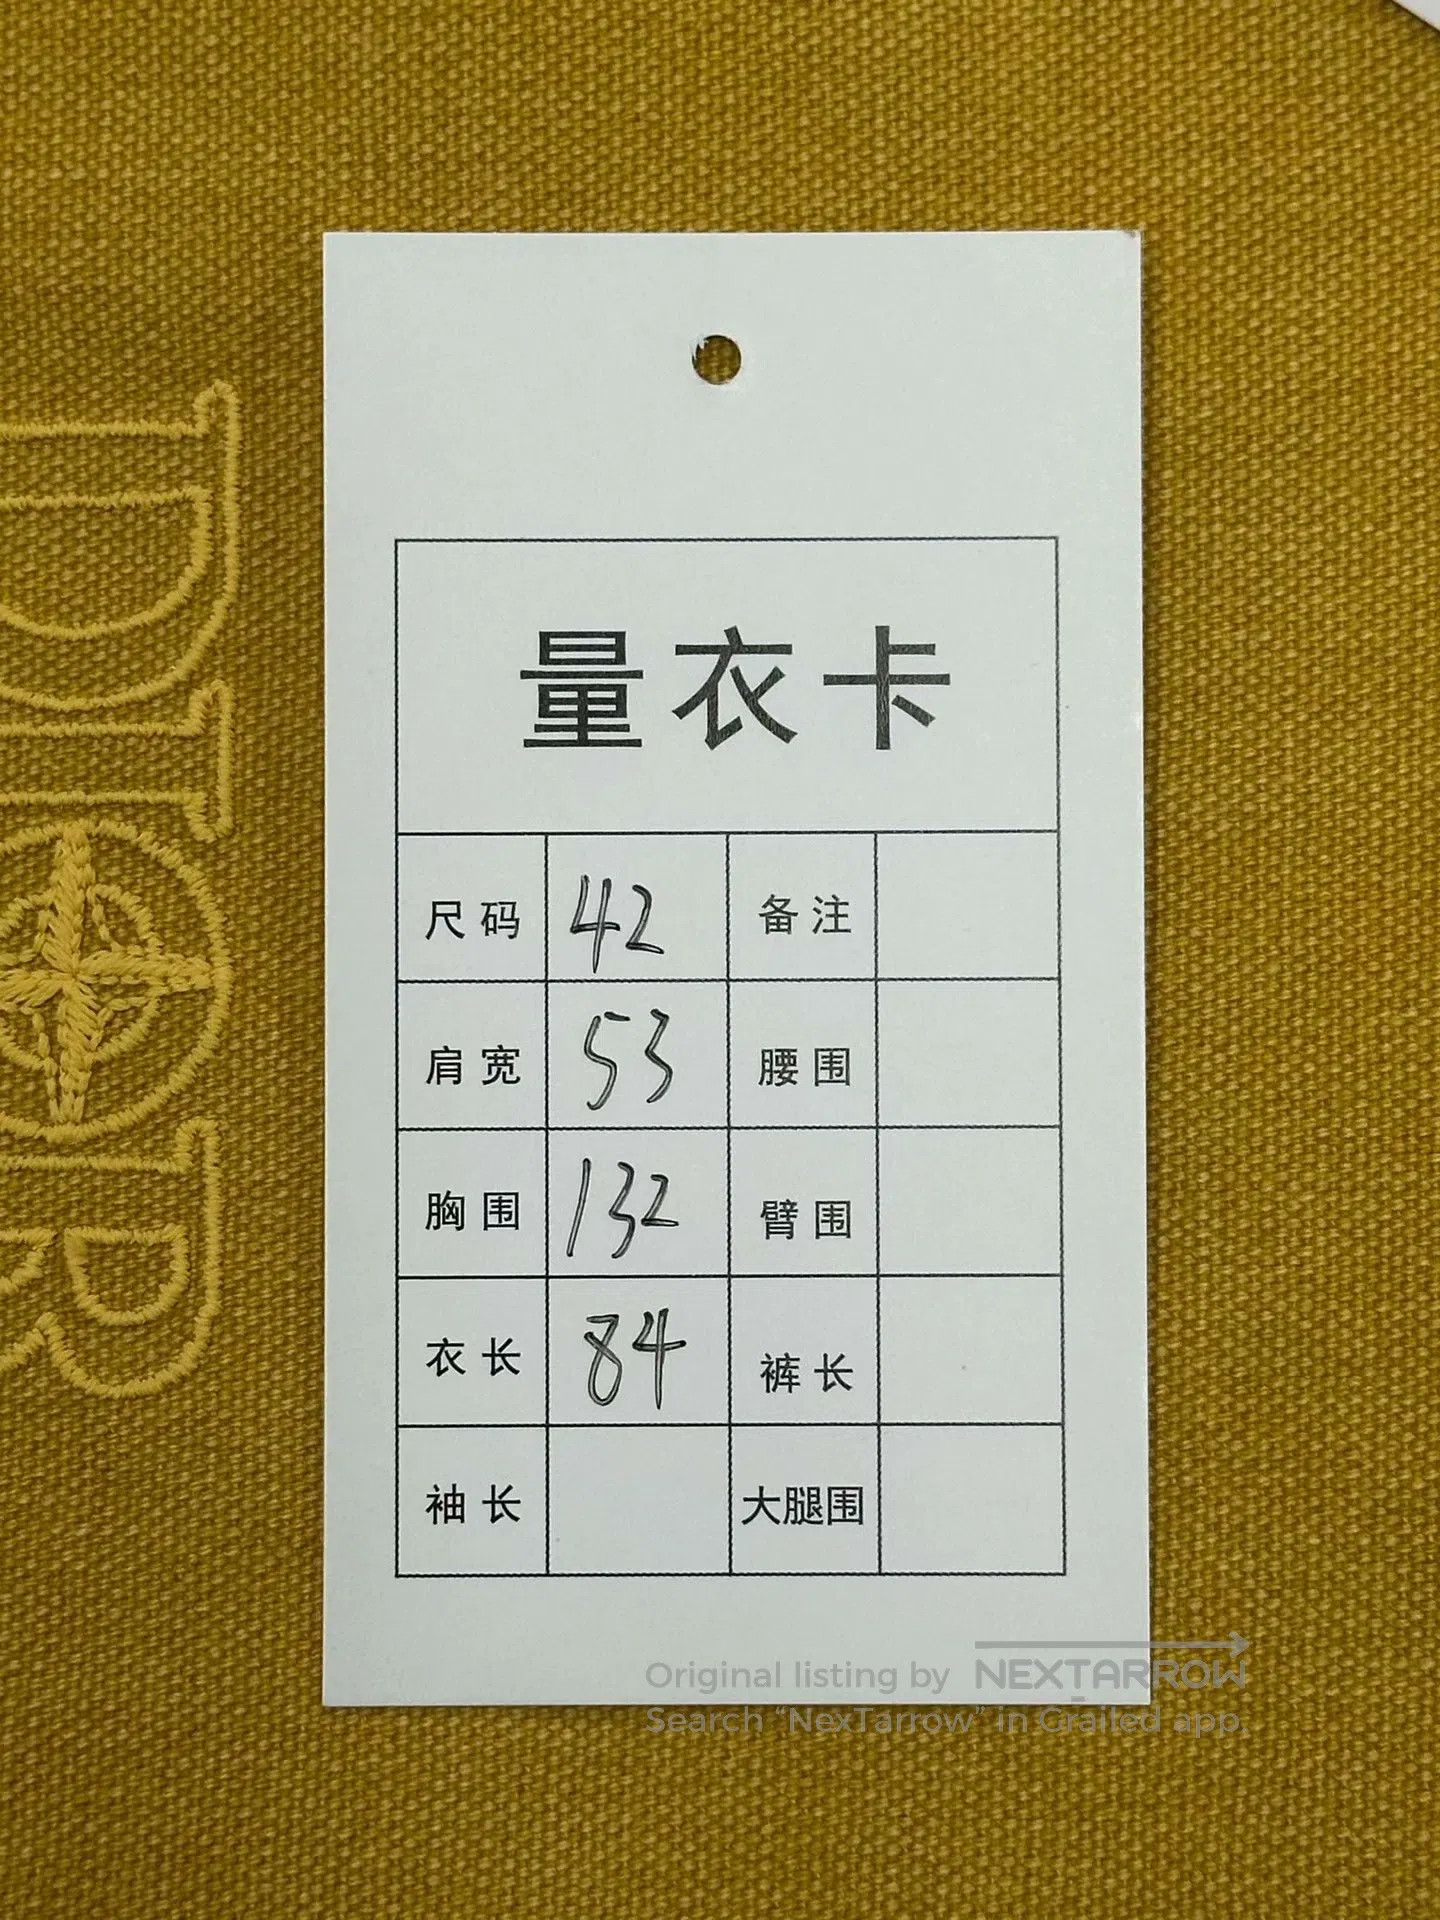 DIOR
量衣卡
尺码 42 备注
肩宽 53 腰围
胸围 132 臂围
衣长 84 裤长
袖长 大腿围
Original listing by NEXTARROW
Search “NexTarrow” in Grailed app.